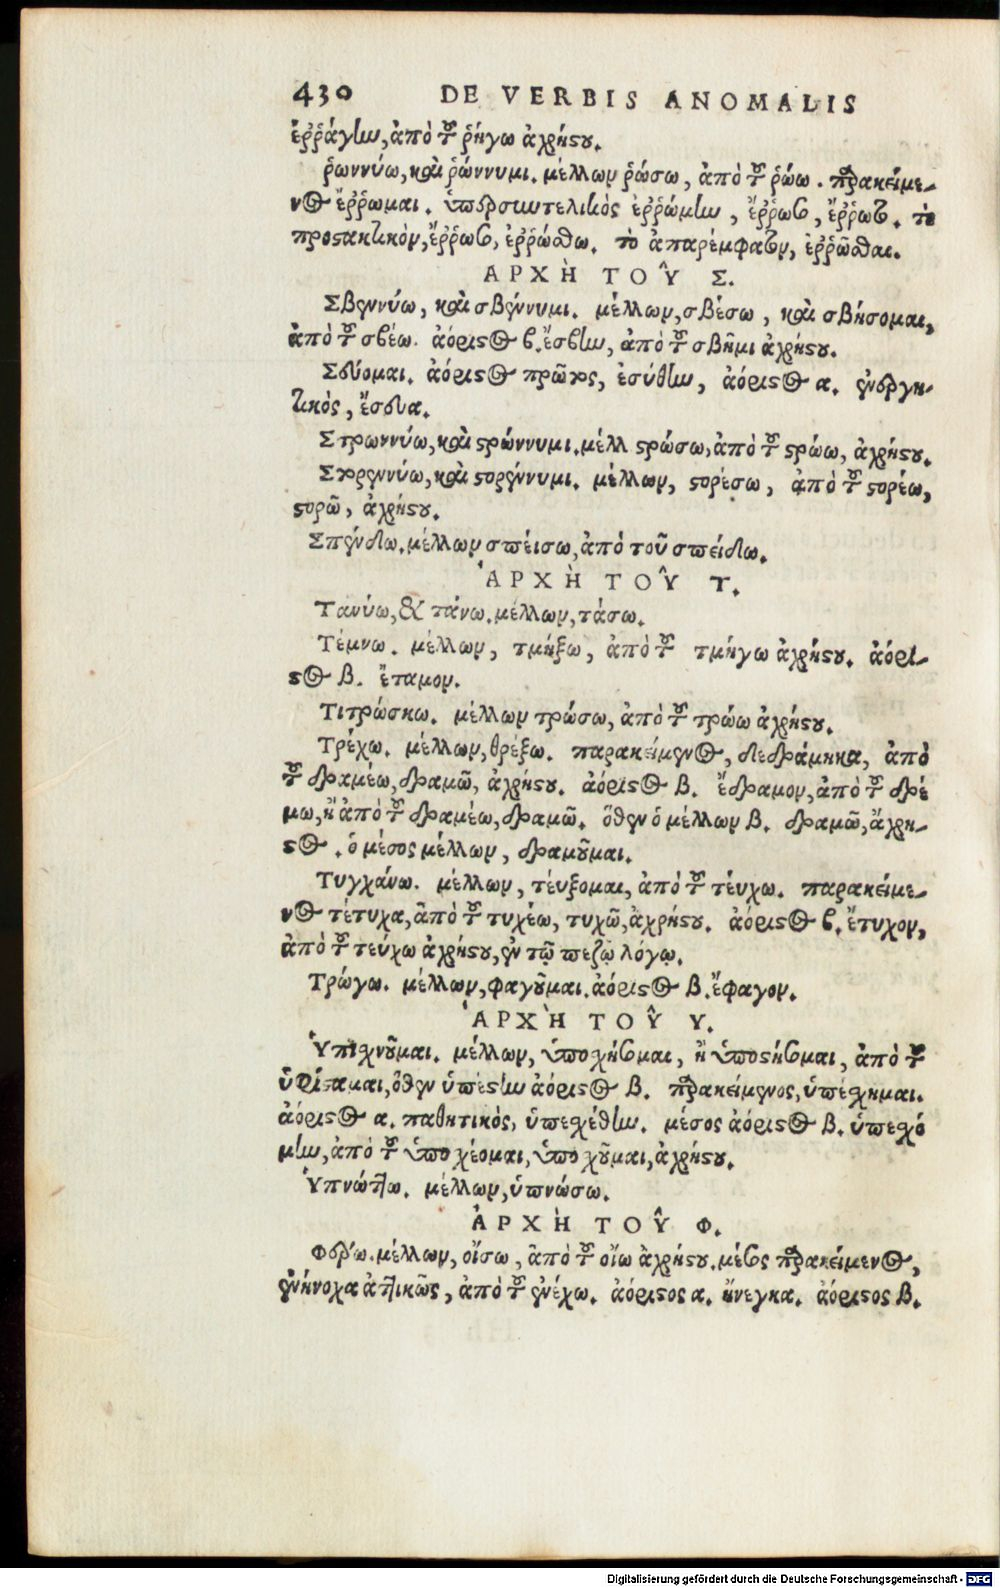 430 DE VERBIS ANOMALIS
ἐῤῥάγην, ἀπὸ τοῦ ῥήγω ἀχρήστου.
ῥωννύω, καὶ ῥώννυμι. μέλλων ῥώσω, ἀπὸ τοῦ ῥώω. παρακείμε-
νος ἔῤῥωμαι. ὑπερσυντελικὸς ἐῤῥώμην, ἔῤῥωσο, ἔῤῥωτο. τὸ
προστακτικὸν, ἔῤῥωσο, ἐῤῥώσθω. τὸ ἀπαρέμφατον, ἐῤῥῶσθαι.
ΑΡΧῊ ΤΟΥ͂ Σ.
Σβεννύω, καὶ σβέννυμι. μέλλων, σβέσω, καὶ σβήσομαι,
ἀπὸ τοῦ σβέω. ἀόριστος β. ἔσβην, ἀπὸ τοῦ σβῆμι ἀχρήστου.
Σεύομαι. ἀόριστος πρῶτος, ἐσύθην, ἀόριστος α. ἐνεργη-
τικὸς, ἔσευα.
Στρωννύω, καὶ στρώννυμι. μέλλ στρώσω, ἀπὸ τοῦ στρώω, ἀχρήστου.
Στορεννύω, καὶ στορέννυμι. μέλλων, στορέσω, ἀπὸ τοῦ στορέω,
στορῶ, ἀχρήστου.
Σπένδω. μέλλων σπείσω, ἀπὸ τοῦ σπείδω.
ἈΡΧῊ ΤΟΥ͂ Τ.
Τανύω, & τάνω. μέλλων, τάσω.
Τέμνω. μέλλων, τμήξω, ἀπὸ τοῦ τμήγω ἀχρήστου. ἀόρι-
στος β. ἔταμον.
Τιτρώσκω. μέλλων τρώσω, ἀπὸ τοῦ τρώω ἀχρήστου.
Τρέχω. μέλλων, θρέξω. παρακείμενος, δεδράμηκα, ἀπὸ
τοῦ δραμέω, δραμῶ, ἀχρήστου. ἀόριστος β. ἔδραμον, ἀπὸ τοῦ δρέ
μω, ἢ ἀπὸ τοῦ δραμέω, δραμῶ. ὅθεν ὁ μέλλων β. δραμῶ, ἄχρη-
στος. ὁ μέσος μέλλων, δραμοῦμαι.
Τυγχάνω. μέλλων, τεύξομαι, ἀπὸ τοῦ τεύχω. παρακείμε-
νος τέτυχα, ἀπὸ τοῦ τυχέω, τυχῶ, ἀχρήστου. ἀόριστος β. ἔτυχον,
ἀπὸ τοῦ τεύχω ἀχρήστου, ἐν τῷ πεζῷ λόγῳ.
Τρώγω. μέλλων, φαγοῦμαι. ἀόριστος β. ἔφαγον.
ἈΡΧῊ ΤΟΥ͂ Υ.
Ὑπισχνοῦμαι. μέλλων, ὑποσχήσομαι, ἢ ὑποστήσομαι, ἀπὸ τοῦ
ὑφίσταμαι, ὅθεν ὑπέστην ἀόριστος β. παρακείμενος, ὑπέσχημαι.
ἀόριστος α. παθητικὸς, ὑπεσχέθην. μέσος ἀόριστος β. ὑπεσχό
μην, ἀπὸ τοῦ ὑποσχέομαι, ὑποσχοῦμαι, ἀχρήστου.
Ὑπνώττω. μέλλων, ὑπνώσω.
ἈΡΧῊ ΤΟΥ͂ Φ.
Φέρω. μέλλων, οἴσω, ἀπὸ τοῦ οἴω ἀχρήστου. μέσος παρακείμενος,
ἐνήνοχα ἀττικῶς, ἀπὸ τοῦ ἐνέχω. ἀόριστος α. ἤνεγκα. ἀόριστος β.
Digitalisierung gefördert durch die Deutsche Forschungsgemeinschaft - DFG